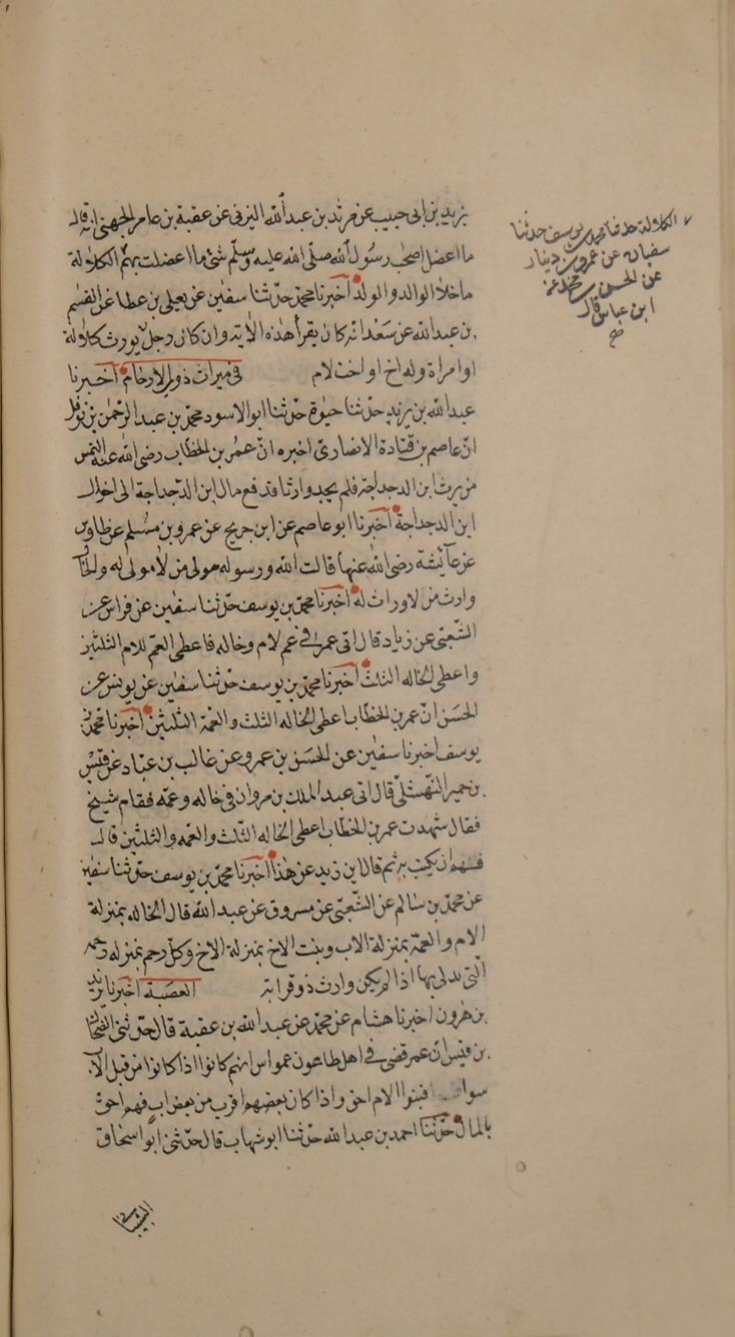 يزيد بن ابى حبيب عن مرثد بن عبد الله اليزنى عن عقبة بن عامر الجهنى انه قال
ما اعضل اصحٰب رسُول الله صلّى الله عليه وسلّم شئ ما اعضلت بهم الكلالة
ما خلا الوالد والولد اخبرنا محمد حدّثنا سفيٰن عن يعلى بن عطا عن القسم
بن عبد الله عن سَعْد انّه كان يقرأ هٰذه الاٰية وان كان رجل يورث كلالة
او امراة وله اخ او اخت لام فى ميراث ذوى الارحام اخبرنا
عبد الله بن يزيد حدّثنا حيٰوة حدّثنا ابو الاسود محمّد بن عبد الرّحمٰن بن نوفل
انّ عاصم بن قتادة الانصارىّ اخبره انّ عمُر بن الخطّاب رضى الله عنه التمس
من يرث ابن الدحداجة فلم يجد وارثا فدفع مال ابن الدّحداجة الى اخوال
ابن الدحداجة اخبرنا ابو عاصم عن ابن جريج عن عمرو بن مسُلم عن طاوس
عن عآئيشة رضى الله عنها قالت الله ورسوله مولى من لا مولى له والخال
وارث من لا وراث له اخبرنا محمّد بن يوسف حدّثنا سفيٰن عن فراس عن
الشّعبىّ عن زياد قال اتى عمر فى عم لام وخاله فاعطى العمّ للام الثلثين
واعطى الخاله الثلث اخبرنا محمّد بن يوسف حدّثنا سفيٰن عن يونس عن
الحسَن انّ عمر بن الخطّاب اعطى الخاله الثلث والعمّة الثلثين اخبرنا محمّد بن
يوسف اخبرنا سفيٰن عن الحسَن بن عمرو عن غالب بن عبّاد عن قيْس
بن حبير النّهشلىّ قال اتى عبد الملك بن مروان فى خاله وعمّه فقام شيخ
فقال شهدت عمر بن الخطّاب اعطى الخاله الثّلث والعمّه والثلثين قال
فهمّ ان يكتب به ثم قال اين زيد عن هٰذا اخبرنا محمّد بن يوسف حدّثنا سفيٰن
عن محمّد بن سالم عن الشّعبىّ عن مسروق عن عبد الله قال الخاله بمنزلة
الام والعمّة بمنزلة الاب وبنت الاخ بمنزلة الاخ وكلّ رحم بمنزله رحمه
الّتى يدلى بها اذا لم يكن وارث ذو قرابة العصَبة اخبرنا يزيد
بن هٰرون اخبرنا هشام عن محمّد عن عبد الله بن عقبة قال حدّثنى الضّحّاك
بن قيس انّ عمر قضى فى اهل طاعون عمواس انهم كانوا اذا كانوا من قبل الاب
سوا فبنوا الام احق واذا كان بعضهم اقرب من بعض اب فهم احق
بالمال حدّثنا احمد بن عبد الله حدّثنا ابو شهاب قال حدّثنى ابوا سحاق
الشيبانى
الكلالة حدثنا محمد بن يوسف حدثنا
سفيان عن عمرو بن دينار
عن الحسن بن محمد عن
ابن عباس قال
صح